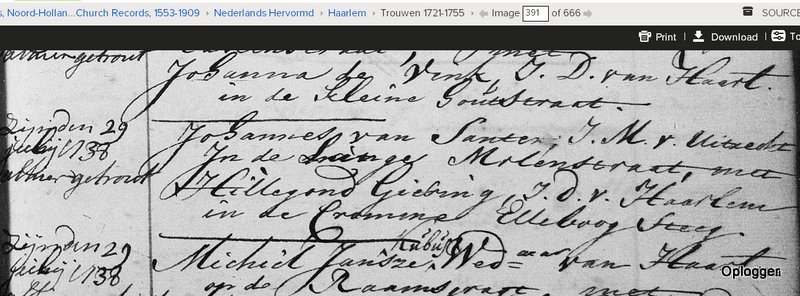 s, Noord-Hollan...Church Records, 1553-1909 › Nederlands Hervormd › Haarlem › Trouwen 1721-1755 › Image 391 of 666 SOURCE
Print | Download | To
alhier getrout
Johanna de Vink, J. D. van Haarl.
in de Kleine Houtstraat.
Zijn den 29
julij 1738
alhier getrout
Johannes van Santen, J. M. v. Uitrecht
In de Lange Molenstraat, met
Hillegond Giebing, J. D. v. Haarlem
in de Cromme Elleboog Steeg.
Zijn den 29
julij 1738
Michiel Jansze Wed= van Haarl
op de Raamgragt, met
Oplogger